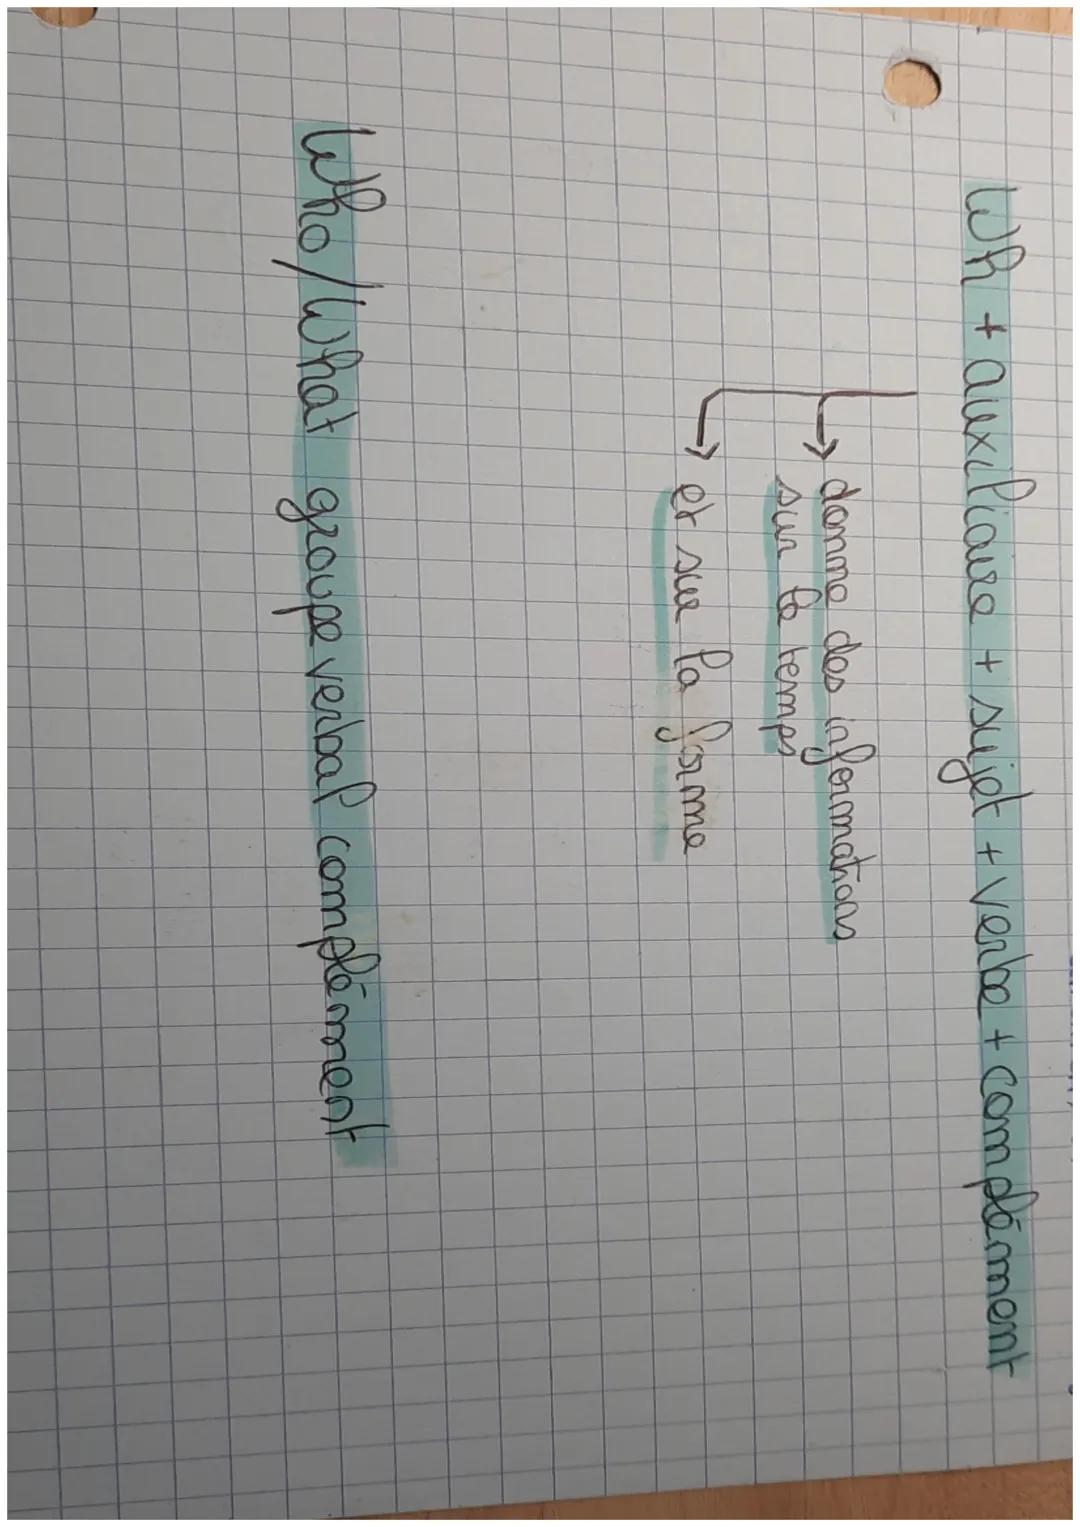 Wh + auxiliaire + sujet + verbe + complément
→ donne des informations
sur le temps
→ et sur la forme
Who/What groupe verbal complément